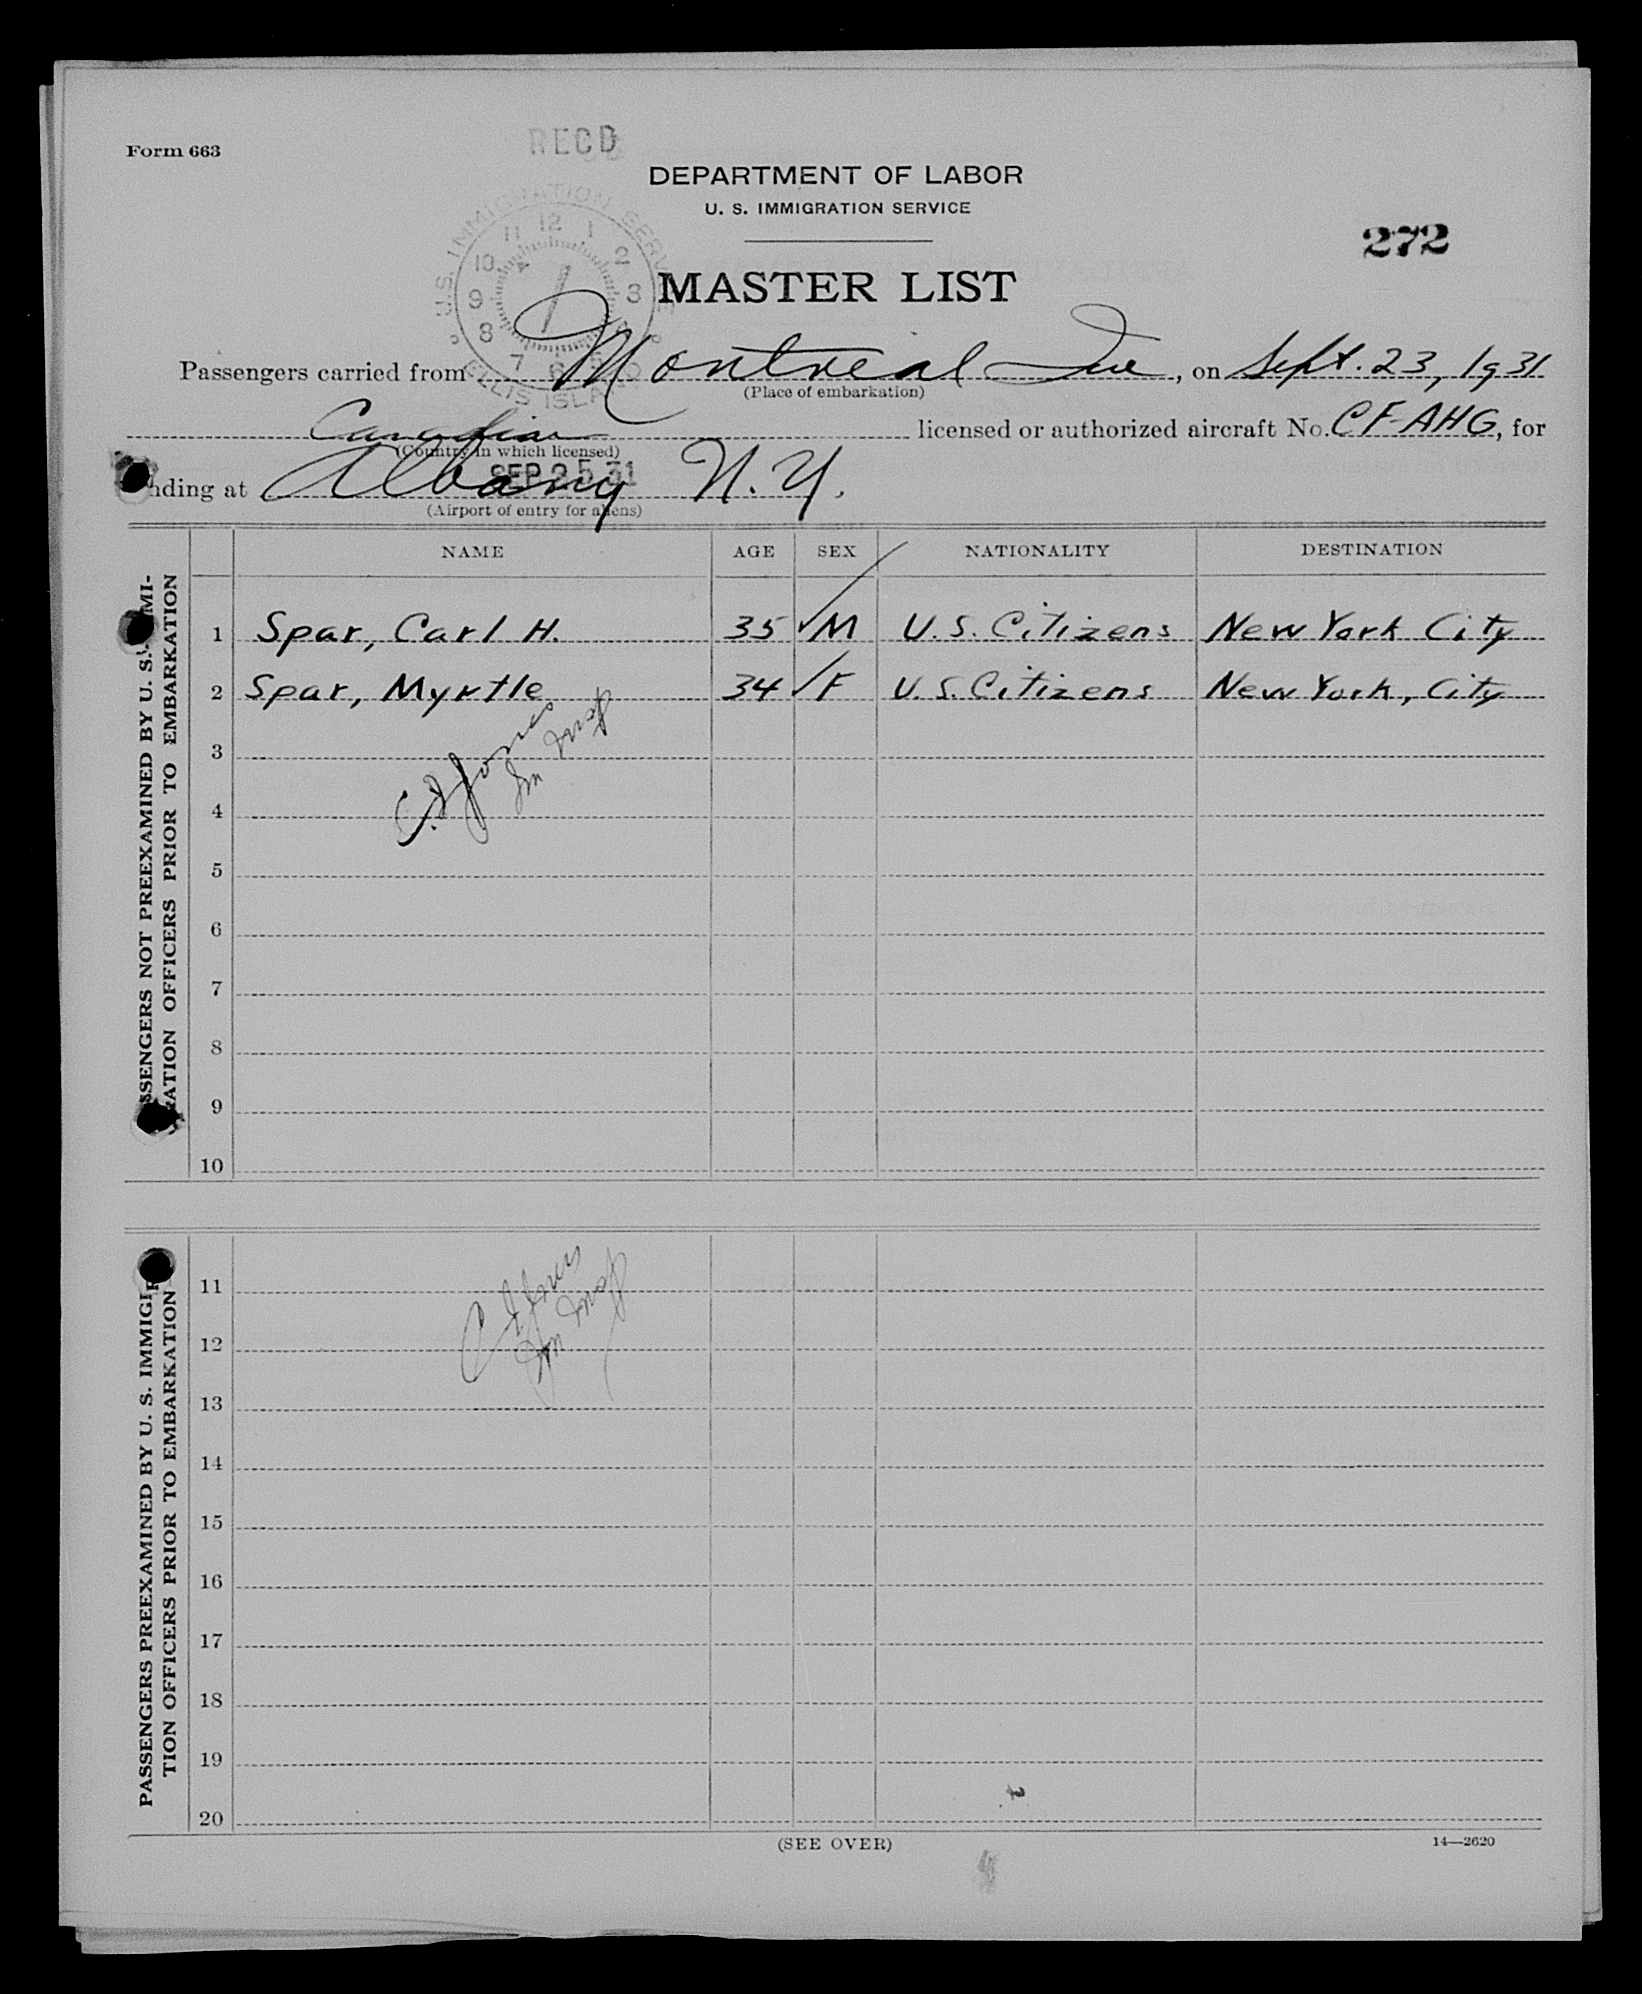 Form 663
RECD
DEPARTMENT OF LABOR
U. S. IMMIGRATION SERVICE
272
MASTER LIST
U.S. IMMIGRATION SERVICE
12 1 2 3 5 6 7 8 9 10 11
ELLIS ISLAND
Passengers carried from Montreal Que, on Sept. 23, 1931
(Place of embarkation)
Canadian licensed or authorized aircraft No. CF-AHG, for
(Country in which licensed)
SEP 25 31
nding at Albany N.Y.
(Airport of entry for aliens)
NAME AGE SEX NATIONALITY DESTINATION
SSENGERS NOT PREEXAMINED BY U. S. IMMI-
RATION OFFICERS PRIOR TO EMBARKATION
1 Spar, Carl H. 35 M U.S. Citizens New York City
2 Spar, Myrtle 34 F U.S. Citizens New York, City
3
4
C. I. Jones
Im Insp
5
6
7
8
9
10
PASSENGERS PREEXAMINED BY U. S. IMMIGR
TION OFFICERS PRIOR TO EMBARKATION
11
12
C I Jones
Im Insp
13
14
15
16
17
18
19
20
(SEE OVER)
14—2620